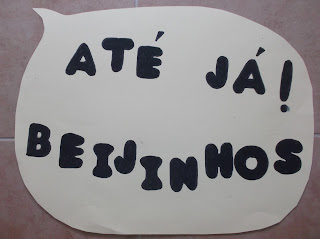 ATÉ JÁ!
BEIJINHOS